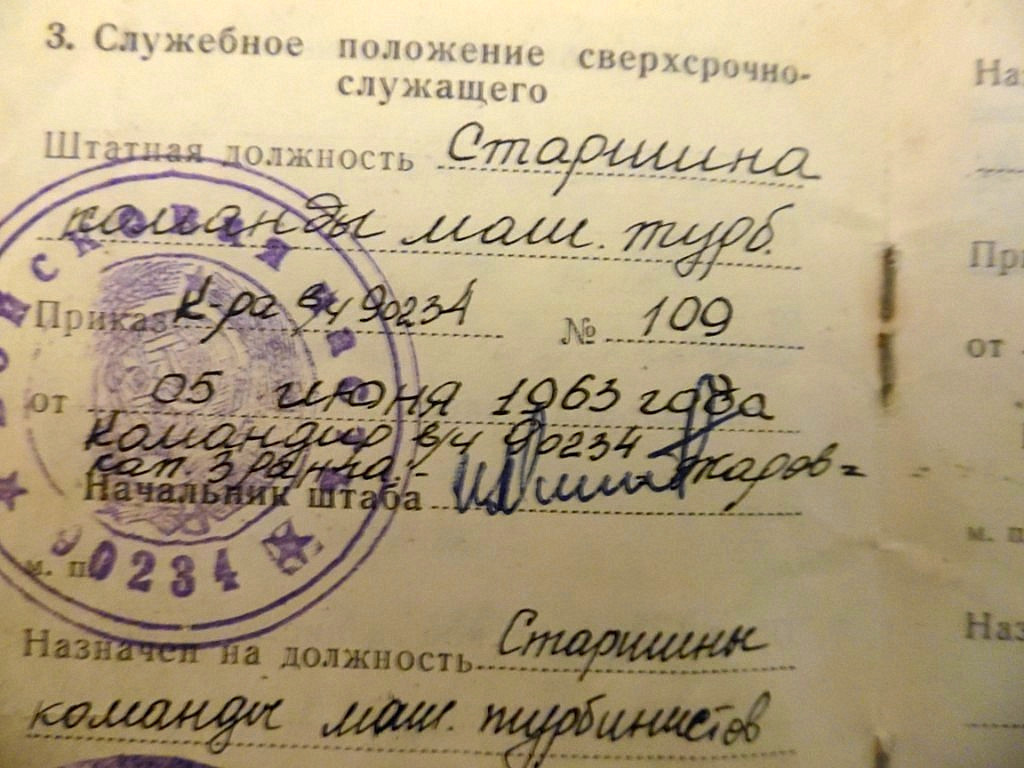 3. Служебное положение сверхсрочно-
служащего
Штатная должность Старшина
команды маш. турб.
Приказ К-ра в/ч 90234 № 109
от 05 июня 1963 года
Командир в/ч 90234
кап. 3 ранга:-
Начальник штаба
м. п.
90234
Назначен на должность Старшины
команды маш. турбинистов
На
При
от
м. п
Наз